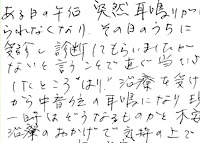 ある日の午后 突然 耳鳴りが
られなくなり、その日のうちに
診 診断してもらいましたが
ないと言うことで
したところ"はり"治療を受け
から中音位の耳鳴になり現
一時はどうなるものかと不安
治療のおかげで気持の上で